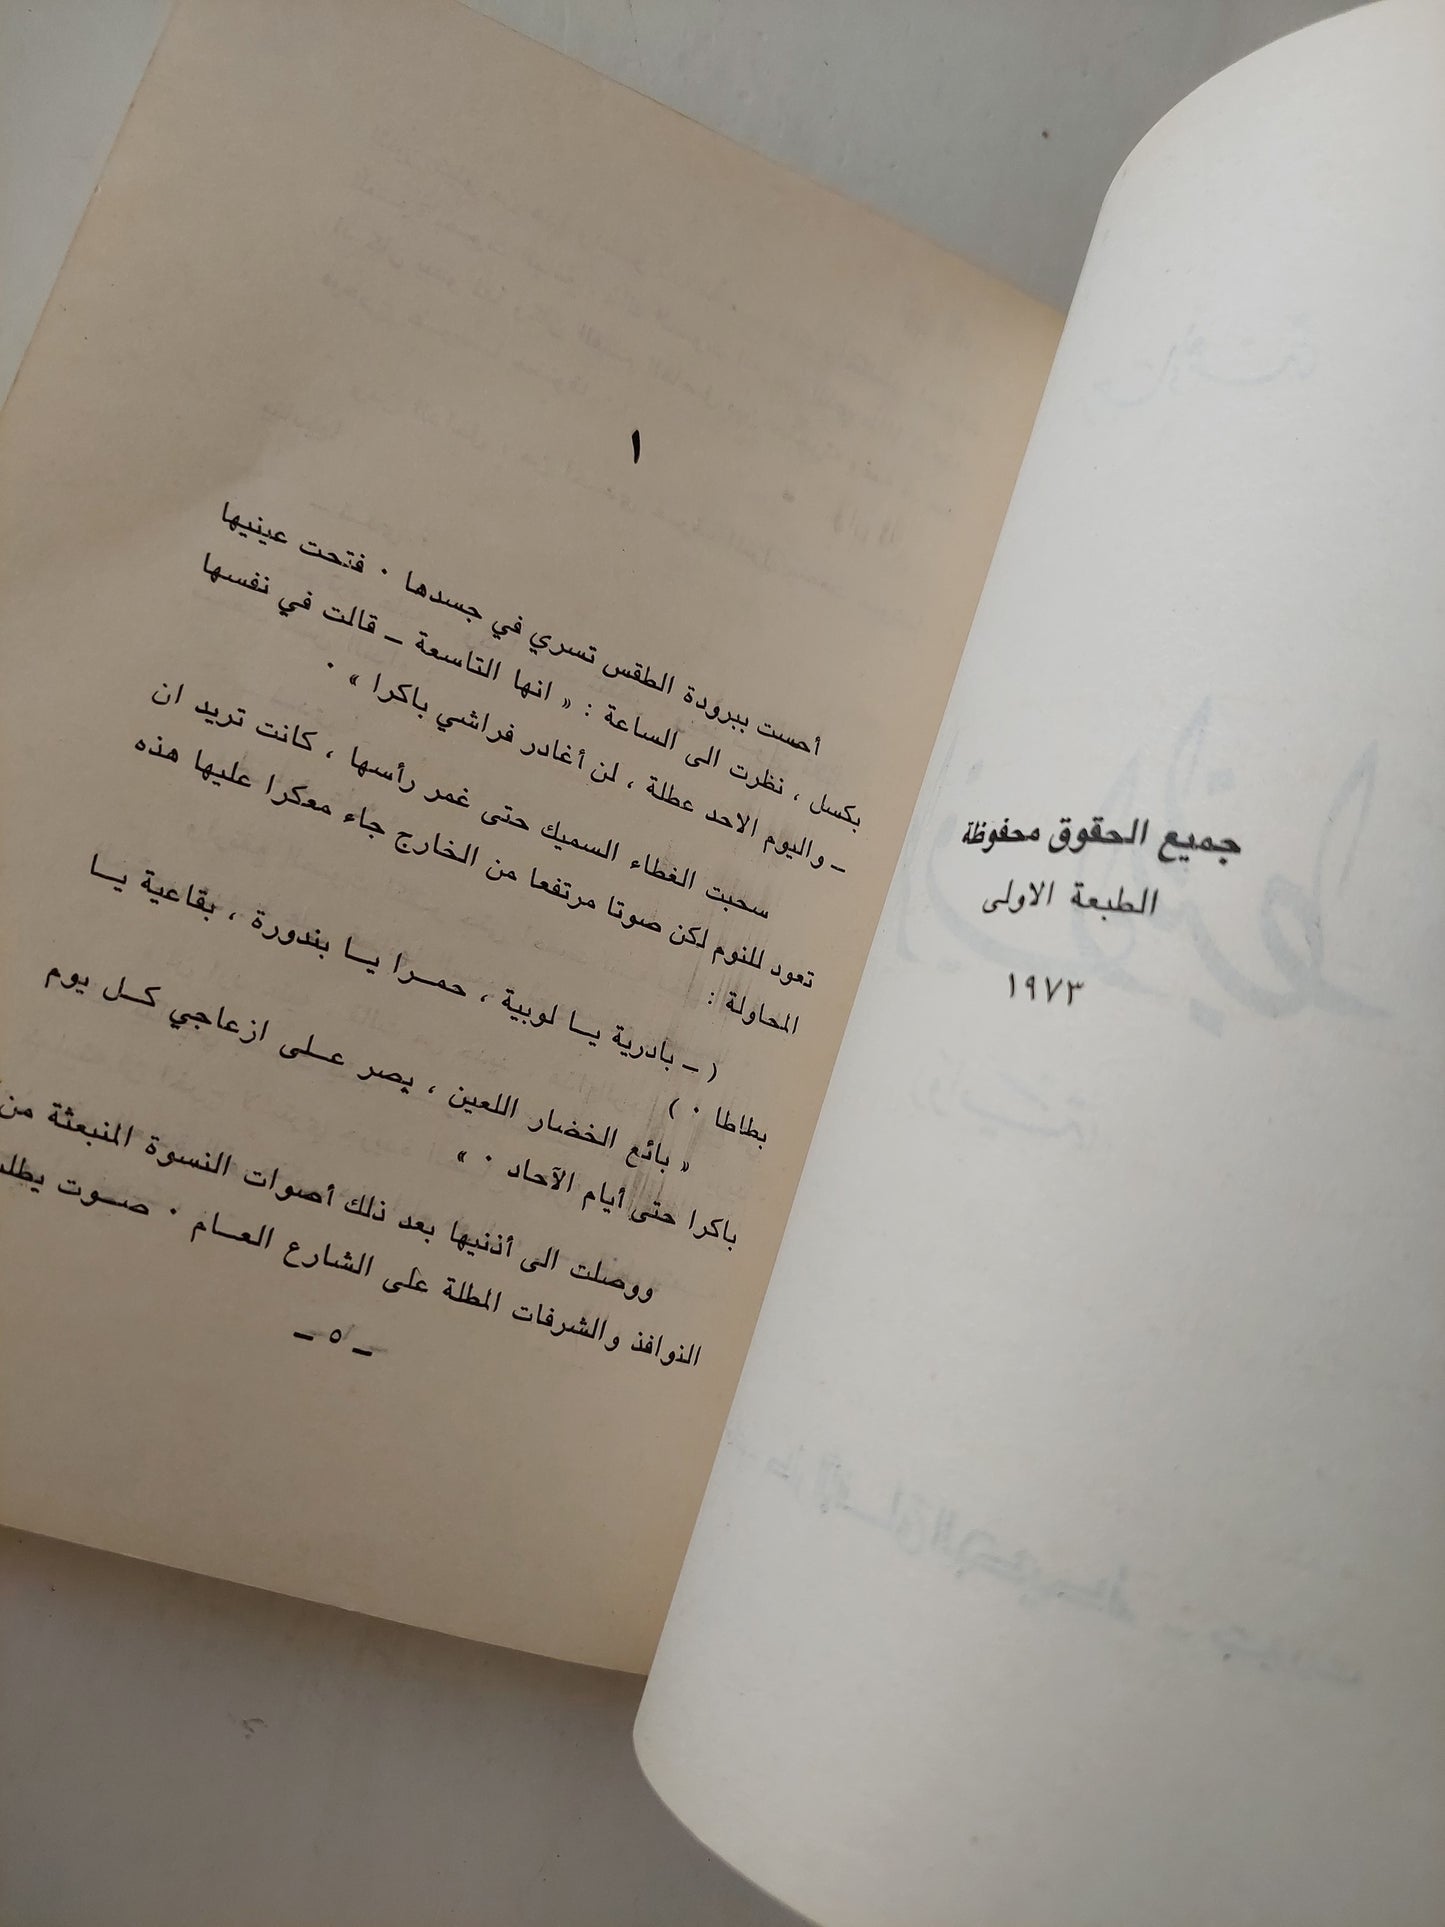 جميع الحقوق محفوظة
الطبعة الاولى
١٩٧٣
١
أحست ببرودة الطقس تسري في جسدها ٠ فتحت عينيها
بكسل ، نظرت الى الساعة : « انها التاسعة ـ قالت في نفسها
ـ واليوم الاحد عطلة ، لن أغادر فراشي باكرا » ٠
سحبت الغطاء السميك حتى غمر رأسها ، كانت تريد ان
تعود للنوم لكن صوتا مرتفعا من الخارج جاء معكرا عليها هذه
المحاولة :
( ـ بادرية يــا لوبية ، حمــرا يــا بندورة ، بقاعية يــا
بطاطا ٠ )
« بائع الخضار اللعين ، يصر عــلى ازعاجي كــل يوم
باكرا حتى أيام الآحاد ٠ »
ووصلت الى أذنيها بعد ذلك أصوات النسوة المنبعثة من
النوافذ والشرفات المطلة على الشارع العــام ٠ صــوت يطلب
ـ ٥ ـ